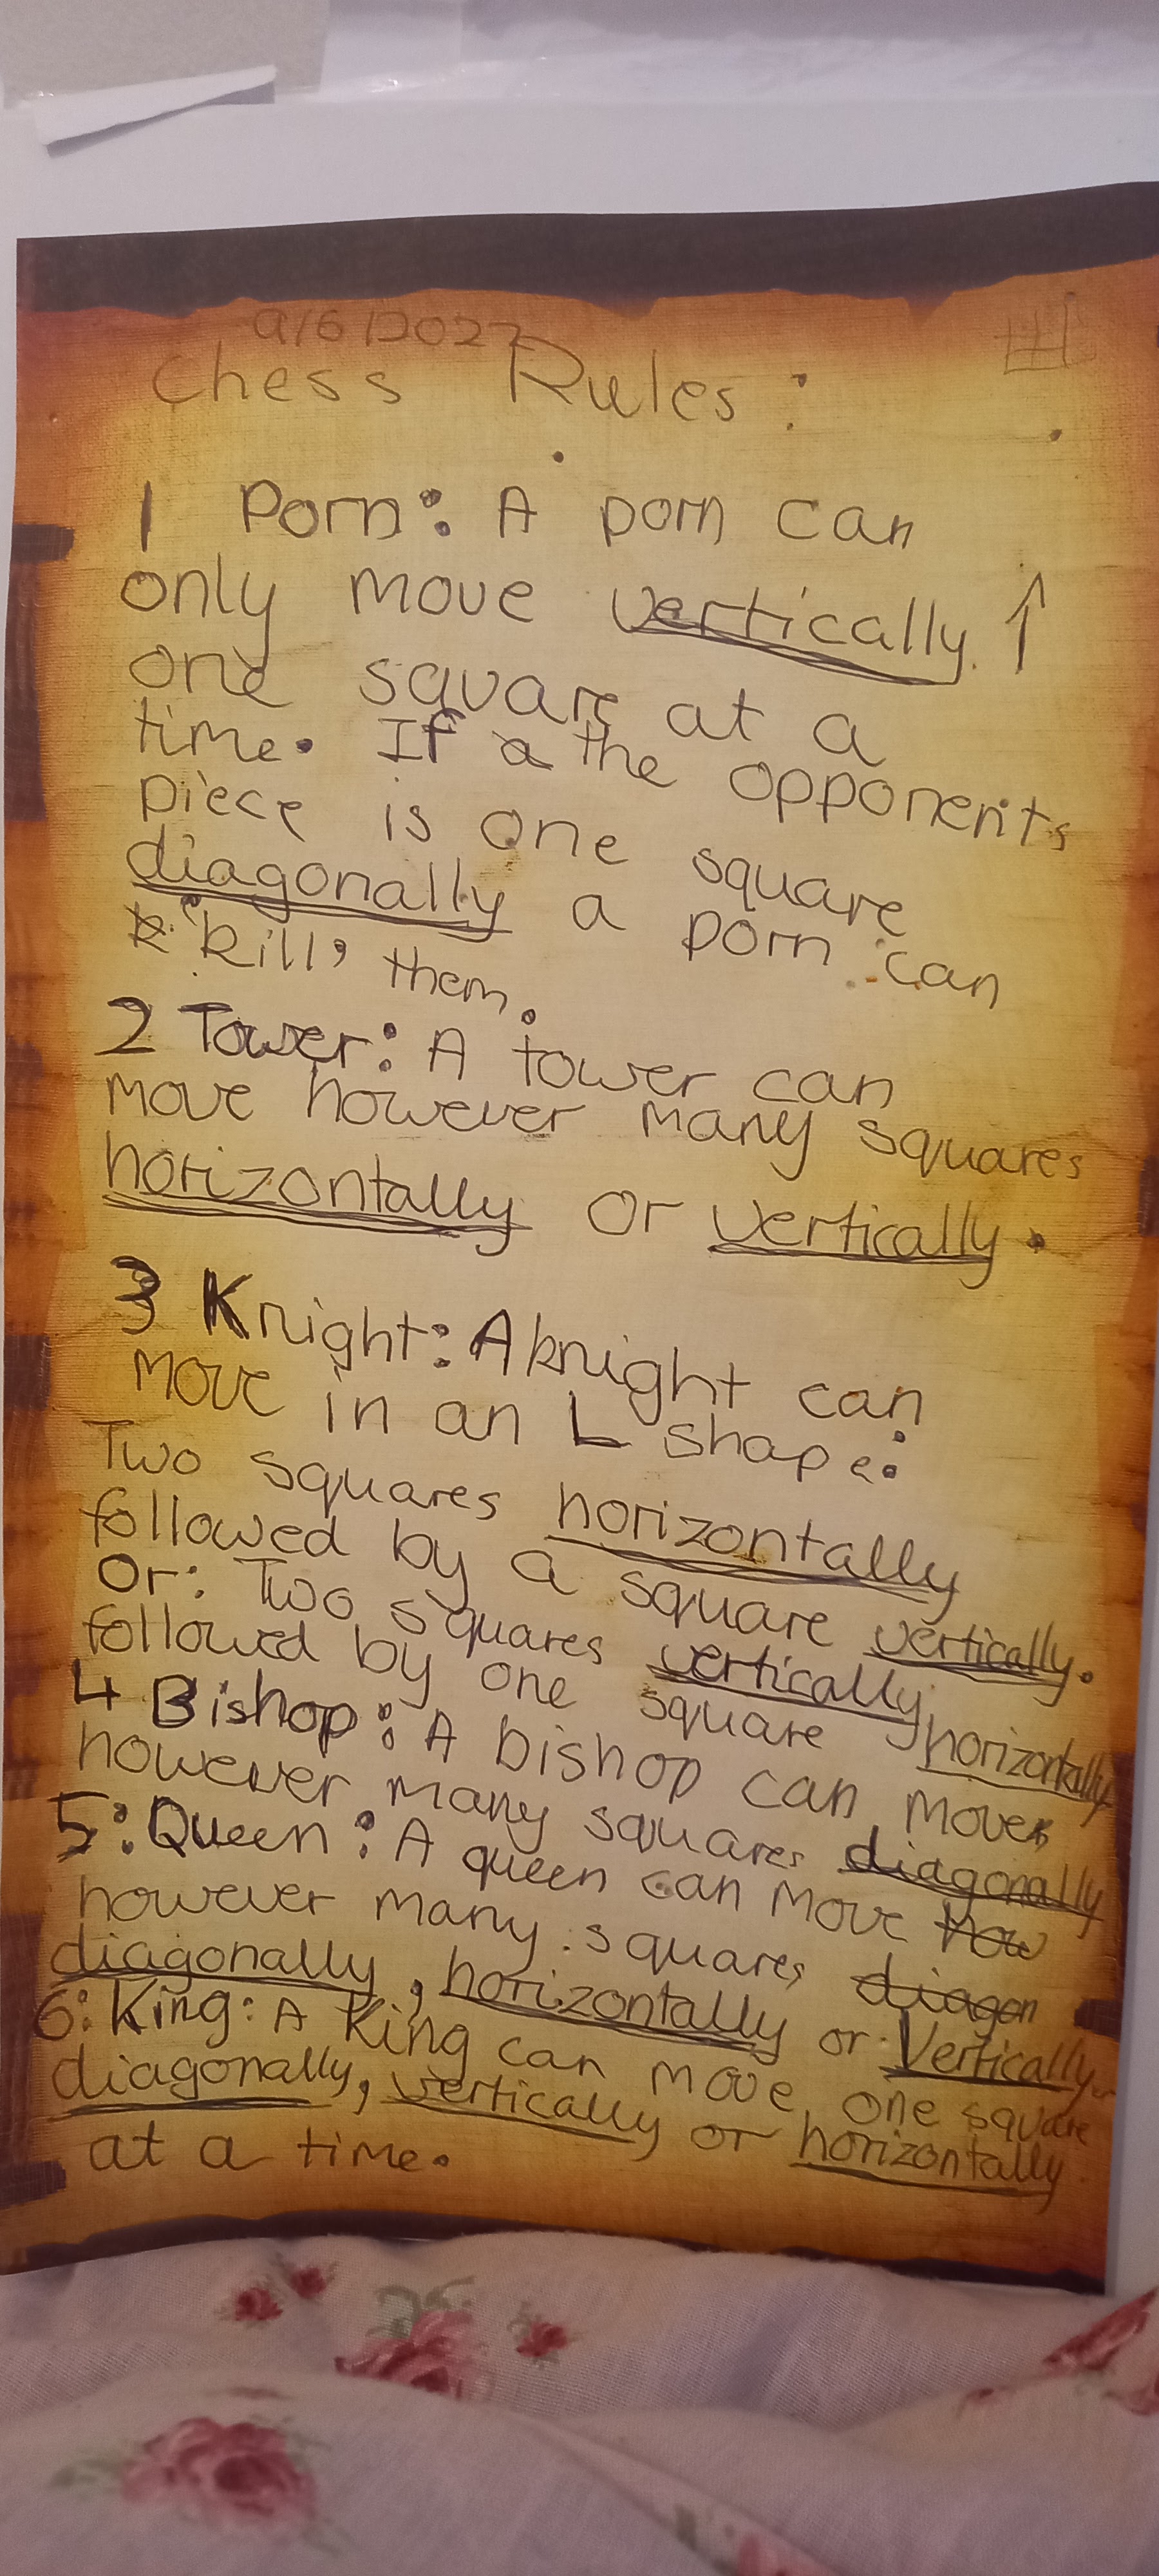 9/6/2022
Chess Rules:
1 Porn: A porn can
only move vertically ↑
one square at a
time. If a the opponents
piece is one square
diagonally a porn can
k 'kill' them.
2 Tower: A tower can
move however many squares
horizontally or vertically.
3 Knight: A knight can
move in an L shape:
Two squares horizontally
followed by a square vertically.
Or: Two squares vertically
followed by one square horizontally
4 Bishop: A bishop can move
however many squares diagonally
5: Queen: A queen can move how
however many squares diagon
diagonally, horizontally or vertically.
6: King: A King can move one square
diagonally, vertically or horizontally
at a time.